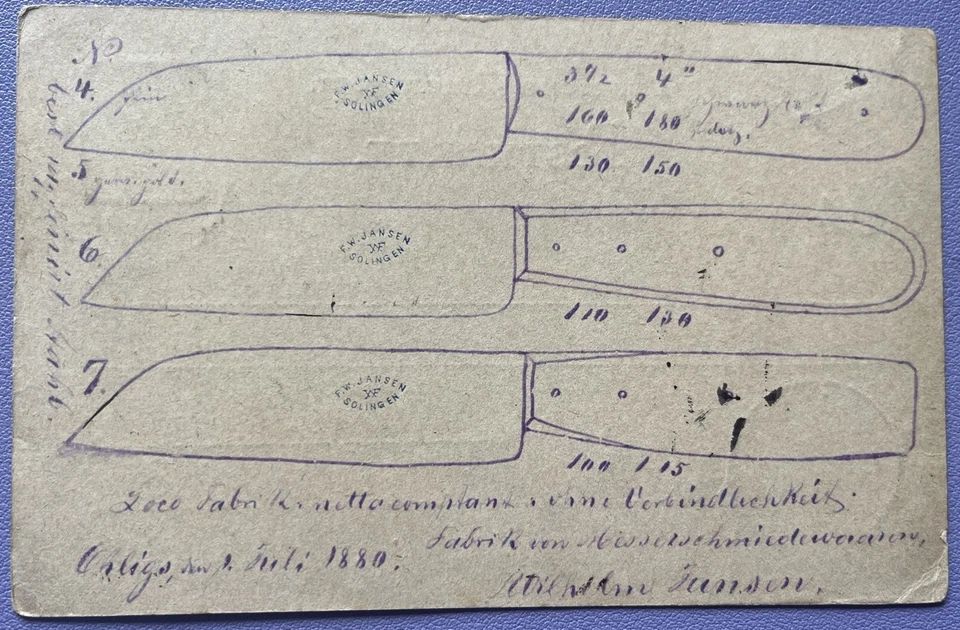 No
4. fein
F.W. JANSEN
SOLINGEN
3 1/2 4"
160 180
schwarz
5
130 150
6.
F.W. JANSEN
SOLINGEN
110 130
7.
F.W. JANSEN
SOLINGEN
100 115
Loco Fabrik. netto comptant. ohne Verbindlichkeit.
Fabrik von Messerschmiedewaaren,
Ohligs, den 1. Juli 1880.
Wilhelm Jansen.